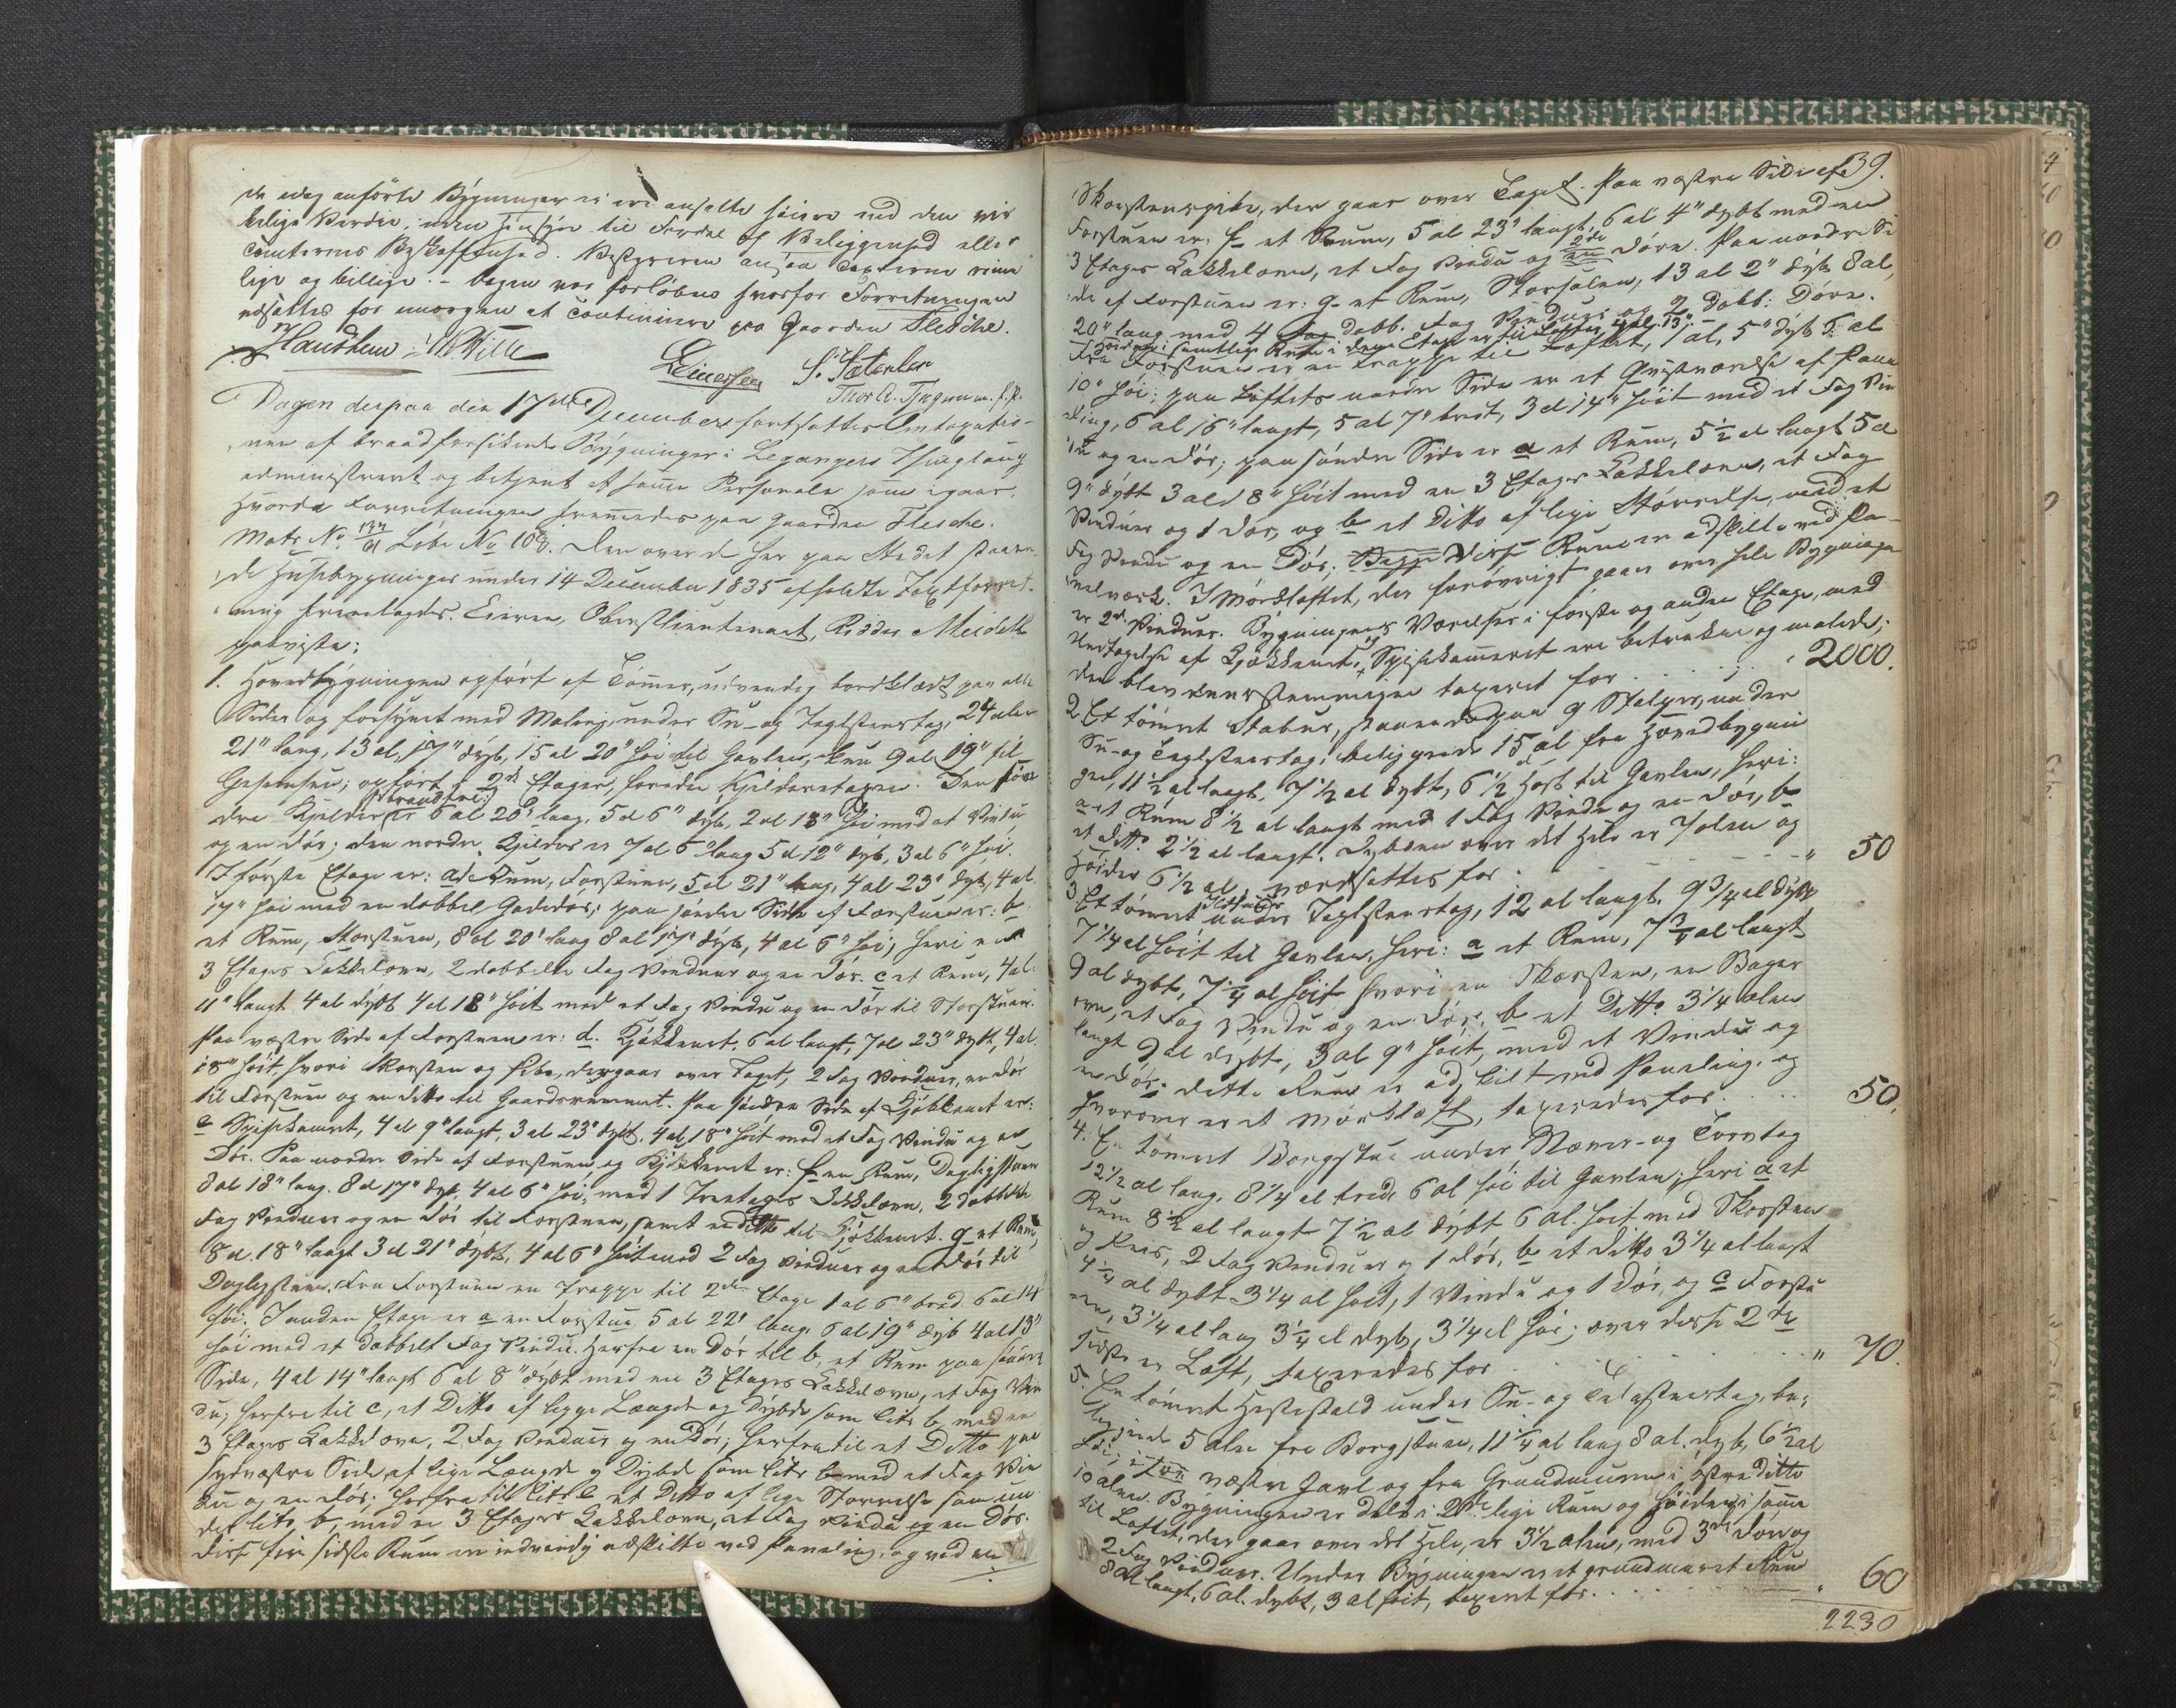 de idag anförte Bygninger ei ere ansatte höiere end den vir
kelige Værdie, uden Hensyn til Fordel af Beliggenhed eller
Tomternes Beskaffenhed. Bestyreren ansaa Taxterne rime
lige og billige. – Dagen var forløben hvorfor Forretningen
udsattes for imorgen at continuere paa Gaarden Flesche.
Dagen derpaa den 17de December fortsattes Omtaxatio-
nen af brandforsikrede Bygninger i Leganger Thinglaug
administreret og betjent af samme Personale som igaar,
hvorda Forretningen fremmedes paa Gaarden Flesche.
Matr. No. Löbe No 108. Den over de her paa Stedet staaen-
de Huusbygninger under 14 December 1835 afholdte Taxtforret-
ning fremlagdes. Eieren, Oberstlieutenant, Ridder Meidell
paaviste:
1. Hovedbygningen opfört af Tömmer, udvendig bordklædt paa alle
Sider og forsynet med Maling, under Su- og Teglsteenstag, 24 alen
21" lang, 13 al. 17" dyb, 15 al 20" höi til Gavlen, kun 9 al 19" til
Gesimsen; opfört i 2de Etager, foruden Kjelderetagen. Den sön
dre Kjelder er 6 al 20" lang, 5 al 6" dyb, 2 al 18" höi med et Vindu
og en Dör; den nordre Kjelder er 7 al 6" lang 5 al 12" dyb, 3 al 6" höi.
I förste Etage er: a, et Rum, Forstuen, 5 al 21" lang, 4 al 23" dyb, 4 al
17" höi med en dobbel Gadedör; paa söndre Side af Forstuen er: b
et Rum, Storstuen, 8 al 20" lang 8 al 17" dyb, 4 al 6" höi, heri en
3 Etages Kakkelovn, 2 dobbelte Fag Vinduer og en Dör. c et Rum, 4 al
11" langt 4 al dybt 4 al 18" höit med et Fag Vindu og en Dör til Storstuen.
Paa vestre Side af Forstuen er: d. Kjökkenet, 6 al langt, 7 al 23" dybt, 4 al
18" höit, hvori Skorsten og Pibe, der gaar over Taget, 2 Fag Vinduer, en Dör
til Forstuen og en ditto til Gaardsrummet. Paa söndre Side af Kjökkenet er:
e Spiisekamret, 4 al 9" langt, 3 al 23" dybt, 4 al 18" höit med et Fag Vindu og en
Dör. Paa nordre Side af Forstuen og Kjökkenet er: f en Rum, Dagligstuen
8 al 18" lang, 8 al 17" dyb, 4 al 6" höi, med 1 Treetages Kakkelovn, 2 dobbelte
Fag Vinduer og en Dör til Forstuen, samt en ditto til Kjökkenet. g et Rum,
8 al. 18" langt 3 al 21" dybt, 4 al 6" höit med 2 Fag Vinduer og en Dör til
Dagligstuen. Fra Forstuen en Trappe til 2den Etage 1 al 6" bred 6 al 14"
höi. I anden Etage er a en Forstue 5 al 22" lang, 6 al 19" dyb 4 al 13"
höi med et dobbelt Fag Vindu. Herfra en Dör til b, et Rum paa söndre
Side, 4 al 14" langt 6 al 8" dybt med en 3 Etages Kakkelovn, et Fag Vin
du; herfra til c, et Ditto af lige Længde og Dybde som litr b, med en
3 Etages Kakkelovn, 2 Fag Vinduer og en Dör; herfra til et Ditto paa
sydvestre Side, af lige Længde og Dybde som litr b med et Fag Vin
du og en Dör; herfra til litr e et Ditto af lige Störrelse som un
der litr. b, med en 3 Etages Kakkelovn, et Fag Vindu og en Dör.
disse fire sidste Rum ere indvendig adskilte ved Paneling, og ved en
39.
Skorsteenspibe, der gaar over Taget. Paa vestre Side af
Forstuen er: f et Rum, 5 al 23" langt, 6 al 4" dybt med en
3 Etages Kakkelovn, et Fag Vindu og 2de Döre. Paa nordre Si
de af Forstuen er: g et Rum, Storsalen, 13 al 2" dyb 8 al,
20" lang med 4 dobb. Fag Vinduer og 2 dobb: Döre.
Höiden i samtlige Rum i denne Etage er til Loftet, 4 al 13"
Fra Forstuen er en Trappe til Loftet, 1 al, 5" dyb 6 al
10" höi; paa Loftets nordre Side er et Qvistværelse af Pane
ling, 6 al 16" langt, 5 al 7" bredt, 3 al 14" höit med et Fag Vin
du og en Dör; paa söndre Side er a et Rum, 5 1/2 al langt 5 al
9" dybt 3 al 18" höit med en 3 Etages Kakkelovn, et Fag
Vinduer og 1 Dör, og b et Ditto af lige Störrelse, med et
Fag Vindu og en Dör; Disse Rum ere adskilte ved Pa-
nelværk. I Mörkloftet, der forövrigt gaaer over hele Bygningen
er 2de Vinduer. Bygningens Værelser i förste og anden Etage, med
Undtagelse af Kjökkenet, og Spisekammeret ere betrukne og malede;
den blev eenstemmigen taxeret for . . . 2000.
2 Et tömret Stabur, staaende paa 9 Stolper, under
Su- og Teglsteenstag; beliggende 15 al fra Hovedbygnin
gen, 11 1/2 al langt, 7 1/2 al dybt, 6 1/2 al höit til Gavlen, heri:
a et Rum 8 1/2 al langt med 1 Fag Vindu og en Dör, b
et ditto 2 1/2 al langt. Dybden over det Hele er 7 alen og
Höiden 6 1/2 al, værdsattes for . . . " 50
3 Et tömret Ildhuus under Teglsteenstag, 12 al langt, 9 3/4 al dybt
7 1/4 al höit til Gavlen, heri: a et Rum, 7 3/4 al langt
9 al dybt, 7 1/4 al höit hvori en Skorsten, en Bager
ovn, et Fag Vindu og en Dör; b et Ditto 3 1/4 alen
langt 9 al dybt, 3 al 9" höit, med et Vindu og
en Dör; dette Rum er adskilt ved Paneling, og
hvorover er et Mörkloft, taxeredes for . . . 50.
4. En tömret Borgstue under Næver- og Torvtag
12 1/2 al lang, 8 1/4 al bred, 6 al höi til Gavlen; heri a et
Rum 8 1/2 al langt 7 1/2 al dybt 6 al. höit med Skorsten
og Peis, 2 Fag Vinduer og 1 Dör, b et Ditto 3 1/4 al langt
4 1/4 al dybt 3 1/4 al höit, 1 Vindu og 1 Dör, og c Forstu
en, 3 1/4 al lang 3 1/4 al dyb, 3 1/4 al höi; over disse 2de
sidste er Loft, taxeredes for . . . " 70.
5. En tömret Hestestald under Su- og Teglsteenstag, be-
liggende 5 alen fra Borgstuen, 11 1/4 al lang 8 al. dyb, 6 1/2 al
höi i vestre Gavl og fra Grundmuren i östre ditto
10 alen. Bygningen er delt i 2de lige Rum og Höiden i samme
til Loftet, der gaar over det Hele, er 3 1/2 alen, med 3de Dör og
2 Fag Vinduer. Under Bygningen er et grundmuret Rum
8 al langt, 6 al. dybt, 3 al höit, taxeret for . . . " 60
2230